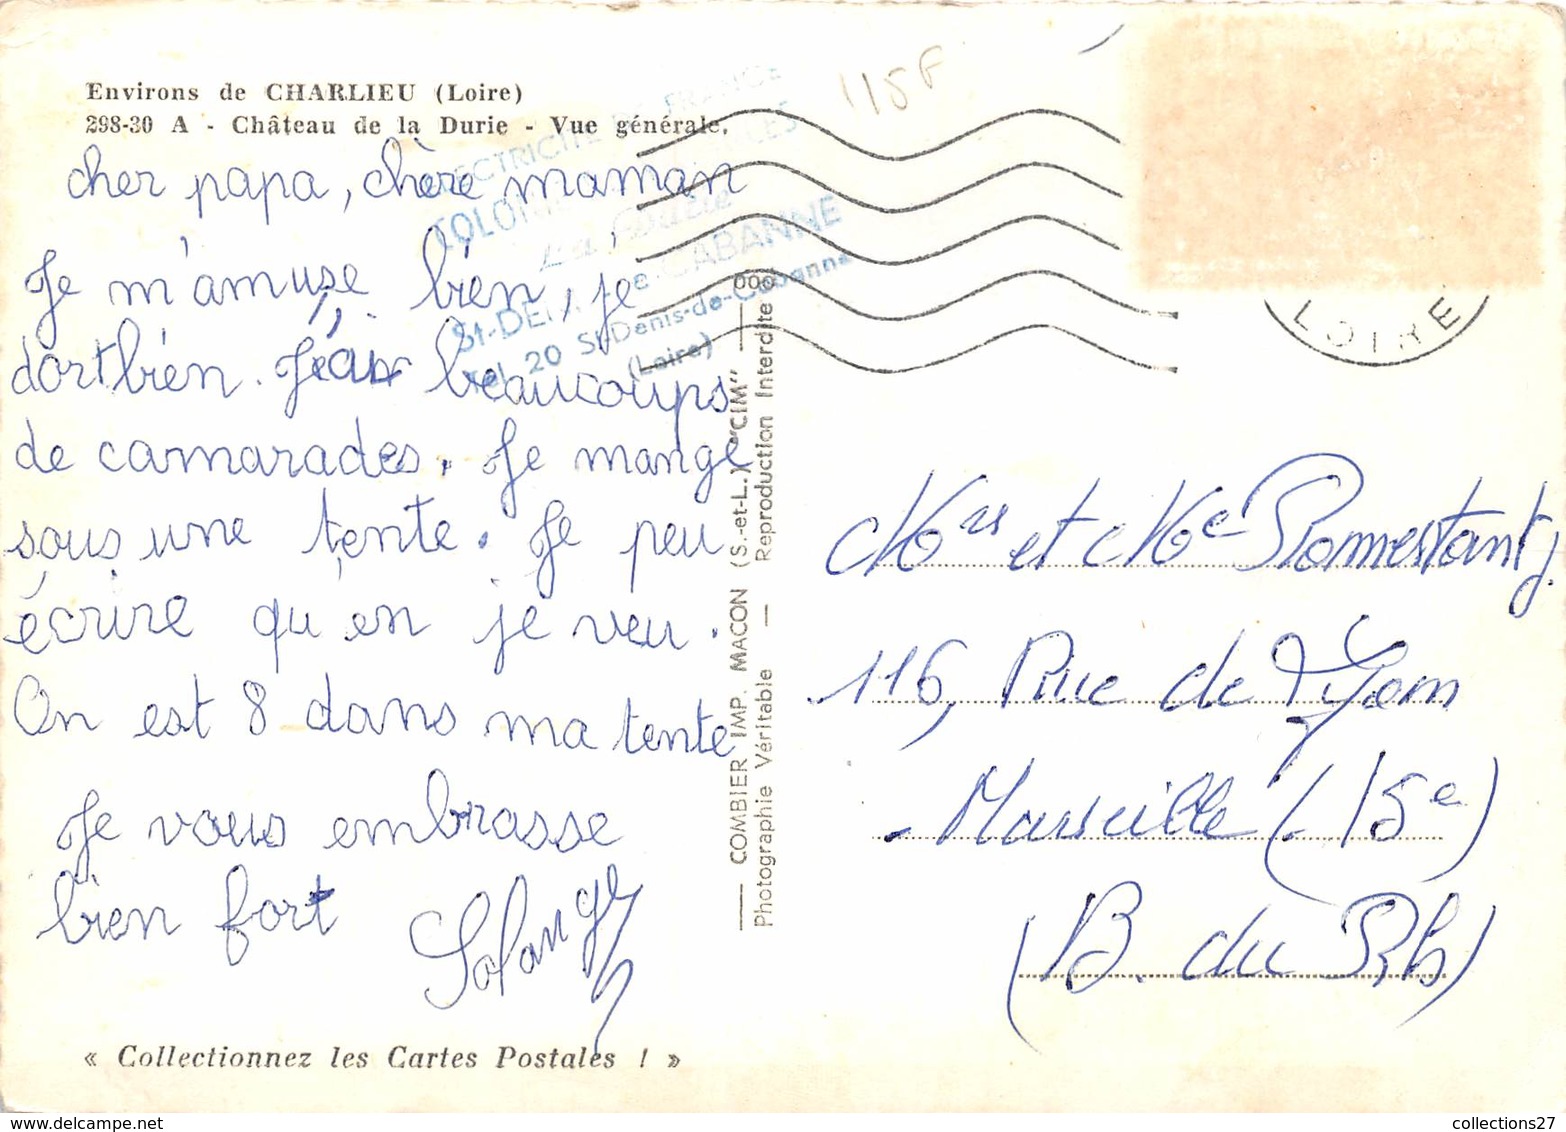 Environs de CHARLIEU (Loire)
298-30 A - Château de la Durie - Vue générale.
cher papa, chère maman
Je m'amuse bien, je
dort bien. J'ai beaucoups
de camarades. Je mange
sous une tente. Je peu
écrire qu en je veu.
On est 8 dans ma tente
Je vous embrasse
bien fort Solange
« Collectionnez les Cartes Postales ! »
115F
ELECTRICITE DE FRANCE
COLONIE
La Durie
St-DENIS-de-CABANNE
Tel. 20 St-Denis-de-Cabanne
(Loire)
COMBIER IMP. MACON (S.-et-L.) "CIM"
Photographie Véritable — Reproduction Interdite
LOIRE
Mrs et Me
116, Rue de Lyon
- Marseille (- 15e)
(B. du Rh)
collections27